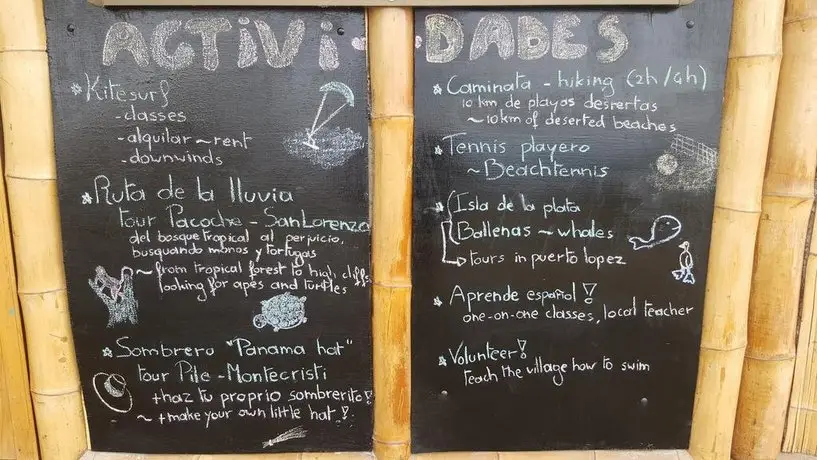 ACTIVI
* Kitesurf
- classes
- alquilar ~ rent
- downwinds
* Ruta de la lluvia
tour Pacoche - San Lorenzo
del bosque tropical al perjuicio,
busquando monos y tortugas
~ from tropical forest to high cliffs
looking for apes and turtles
* Sombrero "Panama hat"
tour Pile - Montecristi
+ haz tu proprio sombrerito!
~ + make your own little hat!
DADES
* Caminata - hiking (2h/4h)
10 km de playas desertas
~ 10 km of deserted beaches
* Tennis playero
~ Beachtennis
* Isla de la plata
Ballenas ~ whales
→ tours in puerto lopez
* Aprende español!
one-on-one classes, local teacher
* Volunteer!
teach the village how to swim